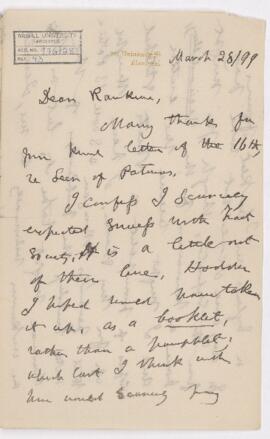 McGILL UNIVERSITY
ARCHIVES
ACC. NO.
REF.
March 28/99
Dear Rankine,
Many thanks for
your kind letter of the 16th,
re Seer of Patmos.
I confess I scarcely
expected success with that
Society. It is a little out
of their line. Hodder
I hoped would have taken
it up, as a booklet,
rather than a pamphlet;
which last I think with
him would scarcely pay